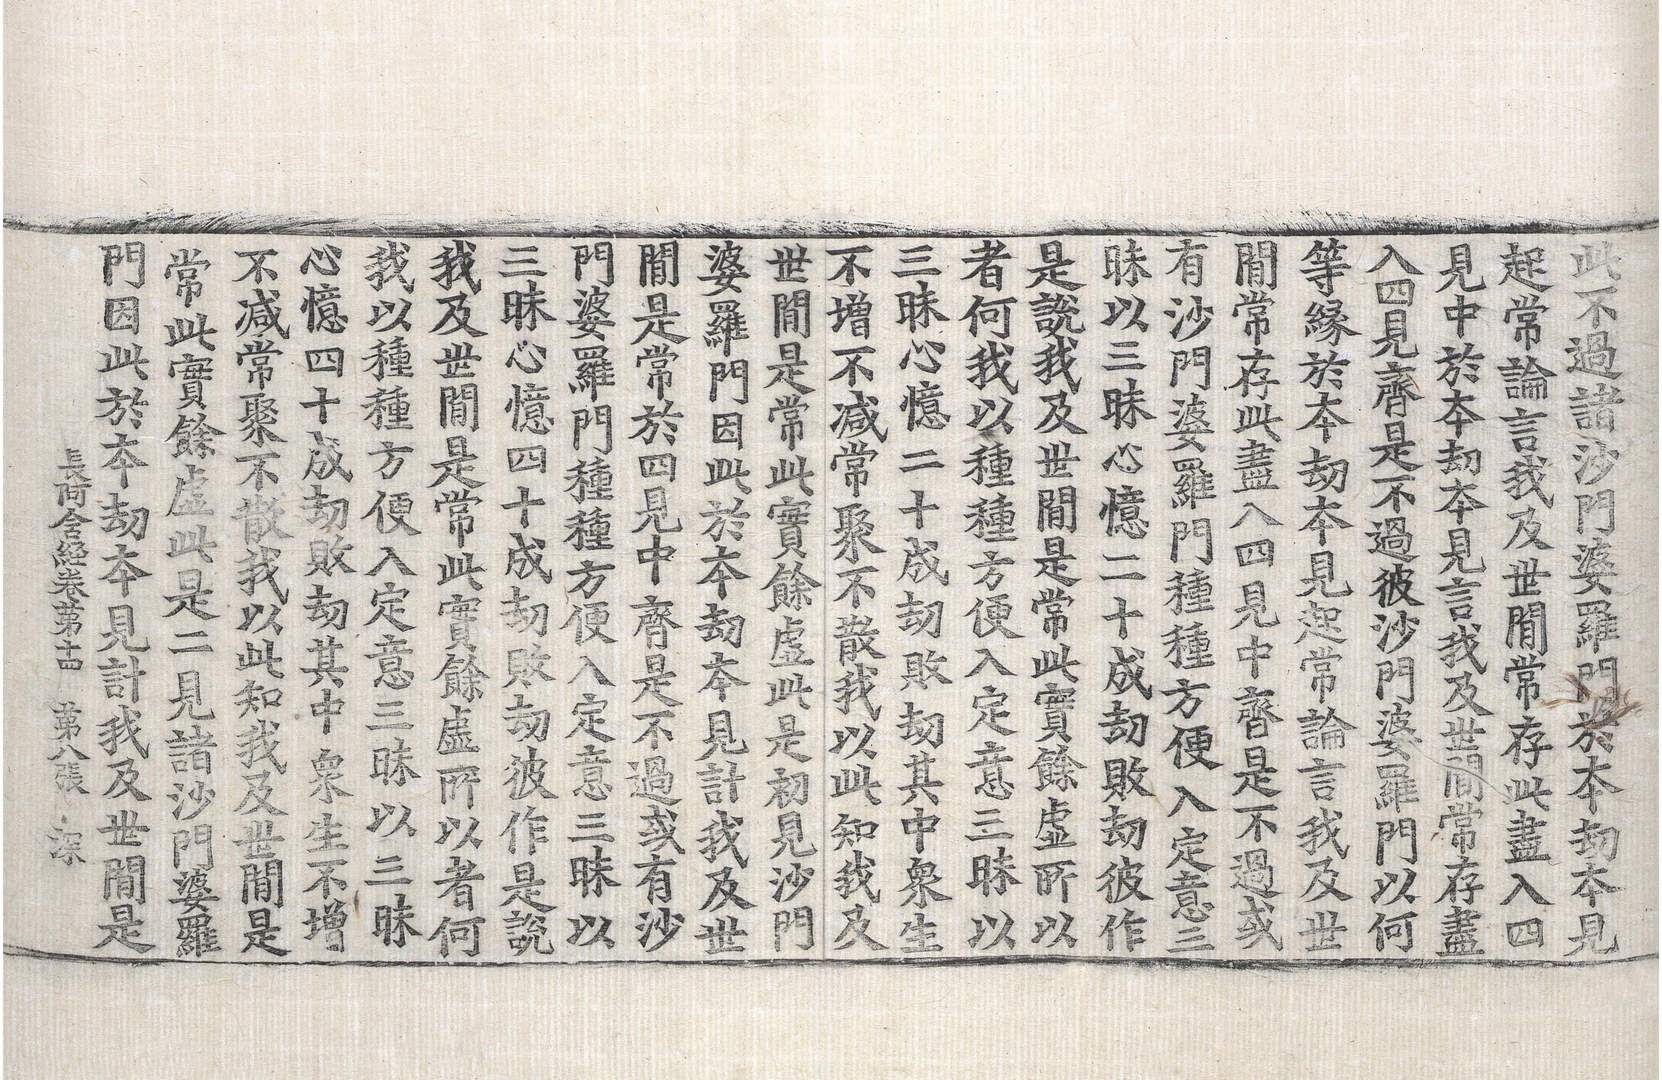 此不過諸沙門婆羅門於本劫本見
起常論言我及世閒常存此盡入四
見中於本劫本見言我及世閒常存盡
入四見齊是不過彼沙門婆羅門以何
等緣於本劫本見起常論言我及世
閒常存此盡入四見中齊是不過或
有沙門婆羅門種種方便入定意三
昧以三昧心憶二十成劫敗劫彼作
是說我及世閒是常此實餘虛所以
者何我以種種方便入定意三昧以
三昧心憶二十成劫敗劫其中衆生
不增不減常聚不散我以此知我及
世閒是常此實餘虛此是初見沙門
婆羅門因此於本劫本見計我及世
閒是常於四見中齊是不過或有沙
門婆羅門種種方便入定意三昧以
三昧心憶四十成劫敗劫彼作是說
我及世閒是常此實餘虛所以者何
我以種種方便入定意三昧以三昧
心憶四十成劫敗劫其中衆生不增
不減常聚不散我以此知我及世閒是
常此實餘虛此是二見諸沙門婆羅
門因此於本劫本見計我及世閒是
長阿含経卷第十四 第八張 深